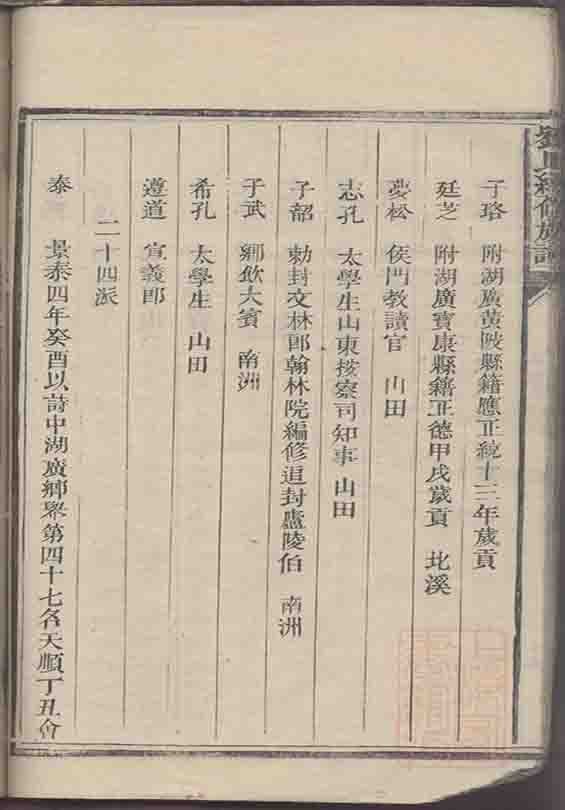 子珞 附湖廣黄陂縣籍應正統十三年歲貢
廷芝 附湖廣寳康縣籍正德甲戌歲貢 北溪
夢松 侯門教讀官 山田
志孔 太學生山東按察司知事 山田
子韶 勅封文林郎翰林院編修追封廬陵伯 南洲
子武 鄉飲大賓 南洲
希孔 太學生 山田
遵道 宣義郎
二十四派
泰 景泰四年癸酉以詩中湖廣鄉舉第四十七名天順丁丑會